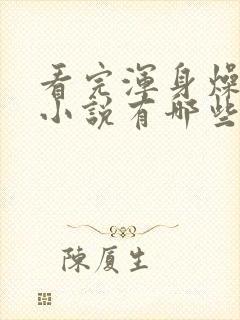 看完渾身燥
小說有哪些
陳厦生